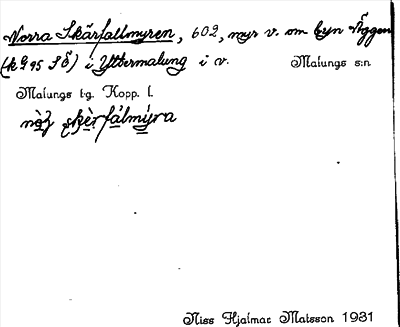 Norra Skärfallmyren, 602, myr v. om byn Äggen
i Yttermalung i v. Malungs s:n
Malungs t:g. Kopp. l.
Niss Hjalmar Matsson 1931